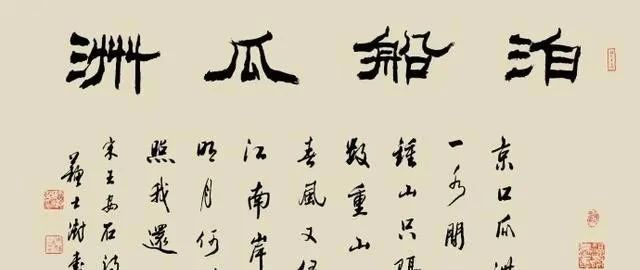 泊船瓜洲
京口瓜洲
一水間
鍾山只隔
數重山
春風又
江南岸
明月何
照我還
宋王安石詩
蘇士澍書